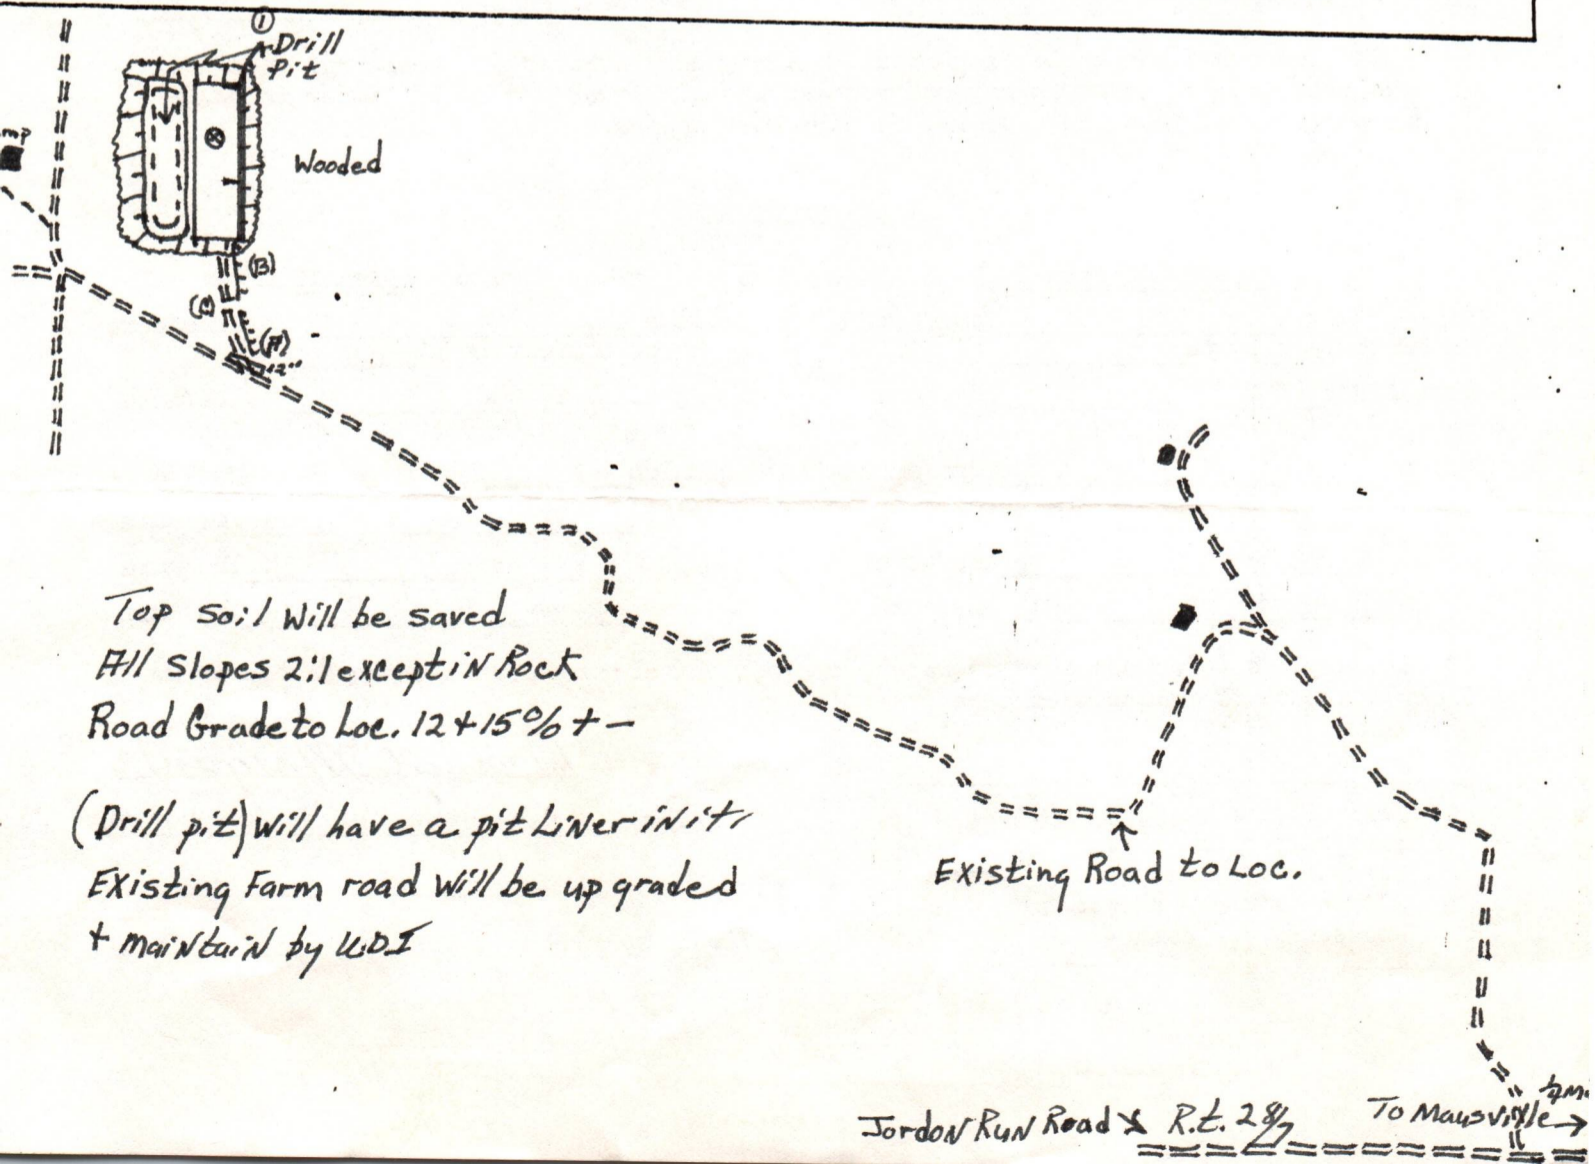 ①
Drill
Pit
Wooded
(B)
(C)
(A)
12"
Top soil will be saved
All Slopes 2:1 except in Rock
Road Grade to Loc. 12 + 15% + -
(Drill pit) will have a pit Liner in it.
Existing Farm road will be up graded
+ maintain by UDI
Existing Road to Loc.
Jordon Run Road R.t. 28/7
To Maysville →